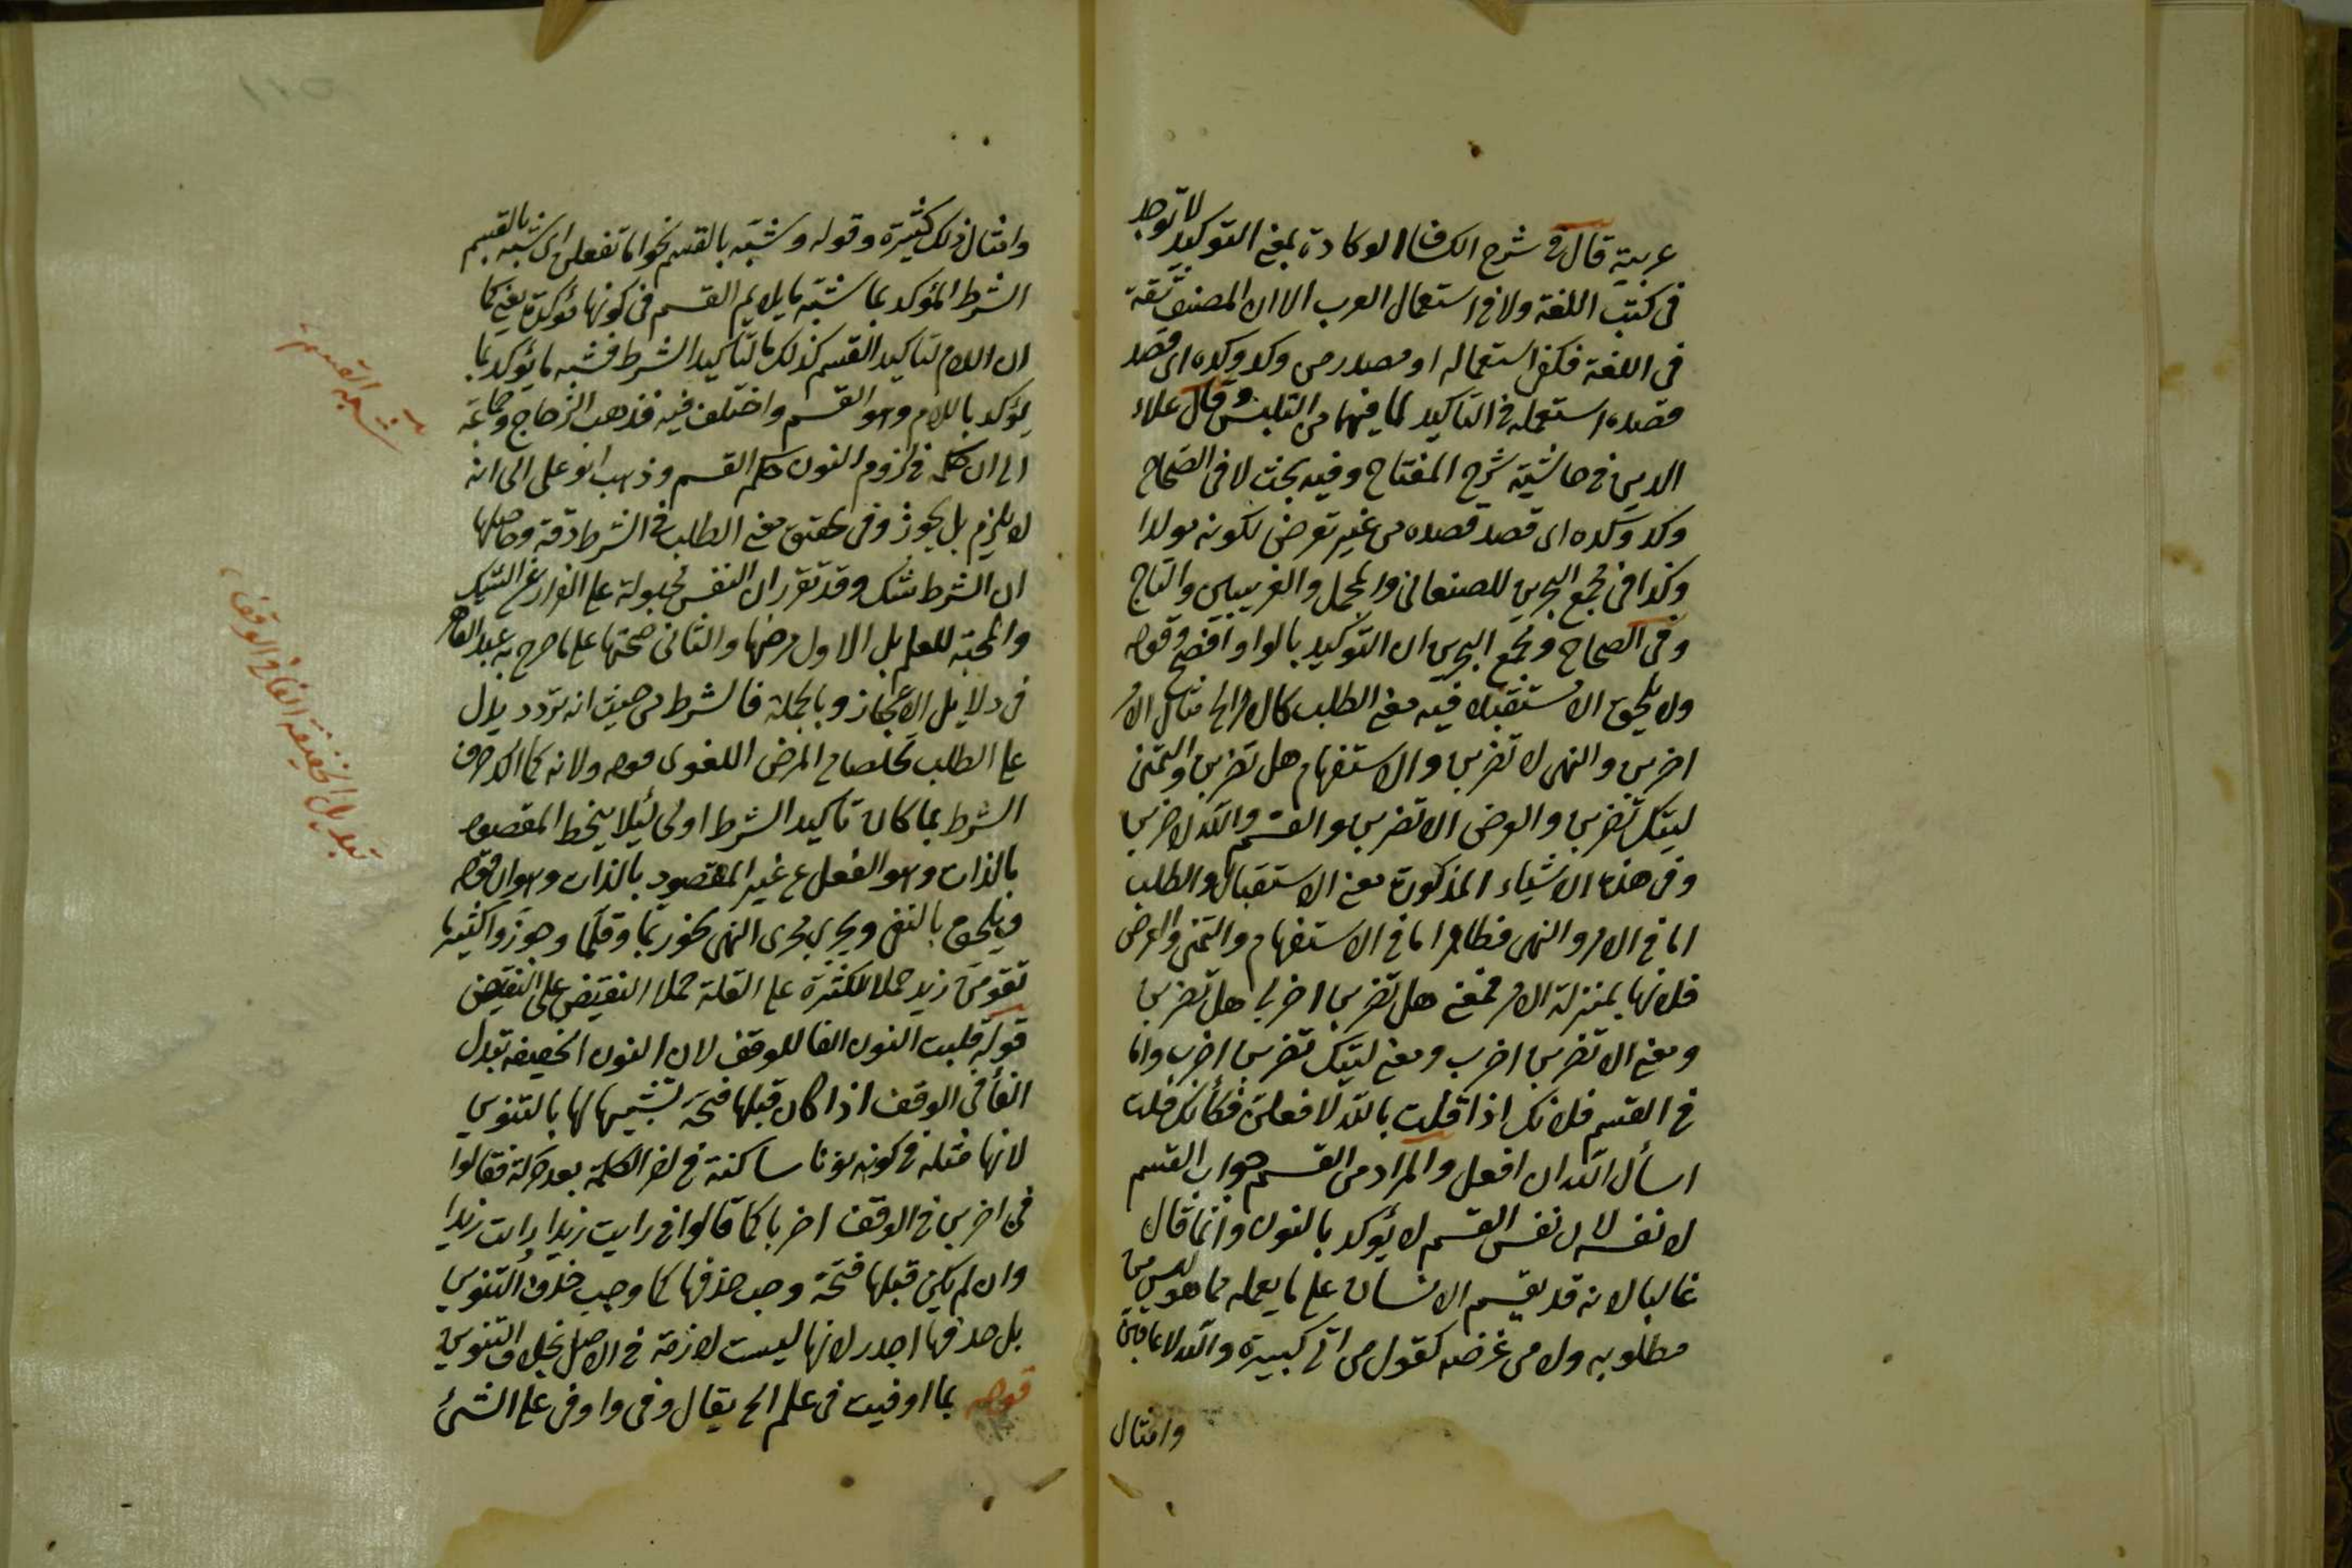 عربية قال فى شرح الكشاف الوكادة بمعنى التوكيد لا توجد
فى كتب اللغة ولا فى استعمال العرب الا ان المصنف ثقة
فى اللغة فكفى استعماله او مصدر من وكد وكده اى قصد
قصده استعمله فى التاكيد لما فيهما من التلبس وقال علاء
الدين فى حاشية شرح المفتاح وفيه بحث لا فى الصحاح
وكد وكده اى قصد قصده من غير تعرض لكونه مولدا
وكذا فى مجمع البحرين للصنعانى والمجمل والغريبين والتاج
وفى الصحاح ومجمع البحرين ان التوكيد بالواو افصح قوله
ولا يلحق الا مستقبلا فيه معنى الطلب كالامر الخ مثال الامر
اضربن والنهى لا تضربن والاستفهام هل تضربن والتمنى
ليتك تضربن والعرض الا تضربن والقسم والله لاضربن
وفى هذه الاشياء المذكورة معنى الاستقبال والطلب
اما فى الامر والنهى فظاهر اما فى الاستفهام والتمنى والعرض
فلانها بمنزلة الامر فمعنى هل تضربن اضرب هل تضربن
ومعنى الا تضربن اضرب ومعنى ليتك تضربن اضرب واما
فى القسم فلانك اذا قلت بالله لافعلن فكأنك قلت
اسأل الله ان افعل والمراد من القسم جواب القسم
لا نفسه لان نفس القسم لا يؤكد بالنون وانما قال
غالبا لانه قد يقسم الانسان على ما يعمله مما هو ليس من
مطلوبه ولا من غرضه كقول من اتى كبيرة والله لاعاقبن
وامثال
وامثال ذلك كثيرة وقوله وشبه بالقسم نحو اما تفعلن اى شبه بالقسم
الشرط المؤكد بما شبه ما يلائم القسم فى كونها مؤكدة يعنى كما
ان اللام لتاكيد القسم كذلك ما لتاكيد الشرط فشبه ما يؤكد بما
يؤكد باللام وهو القسم واختلف فيه فذهب الزجاج وجماعة
الى ان حكمه فى لزوم النون حكم القسم وذهب ابو على الى انه
لا يلزم بل يجوز وفى تحقق معنى الطلب فى الشرط دقة وحاصلها
ان الشرط شك وقد تقرر ان النفس مجبولة على الفرار عن الشك
والمحبة للعلم بل الاول مرضها والثانى صحتها على ما صرح به عبد القاهر
فى دلايل الاعجاز وبالجملة فالشرط من حيث انه تردد يدل
على الطلب تخلصا من المرض اللغوى قوله ولانه لما اكد حرف
الشرط بما كان تاكيد الشرط اولى لئلا ينحط المقصود
بالذات وهو الفعل عن غير المقصود بالذات وهو ان قوله
ويلحق بالنفى ويجرى مجرى النهى نحو ربما وقلما وجوز واكثر ما
تقومن زيد حملا للكثرة على القلة حملا النقيض على النقيض
قوله قلبت النون الفا للوقف لان النون الخفيفة تبدل
الفا فى الوقف اذا كان قبلها فتحة تشبيها لها بالتنوين
لانها مثله فى كونه نونا ساكنة فى اخر الكلمة بعد حركة فقالوا
فى اضربن فى الوقف اضربا كما قالوا فى رايت زيدا رايت زيدا
وان لم يكن قبلها فتحة وجب حذفها كما وجب حذف التنوين
بل حذفها اجدر لانها ليست لازمة فى الاصل بخلاف التنوين
قوله بما اوفيت فى علم الخ يقال وفى واوفى على الشئ
تشبيه القسم
تبديل الخفيفة الفا فى الوقف